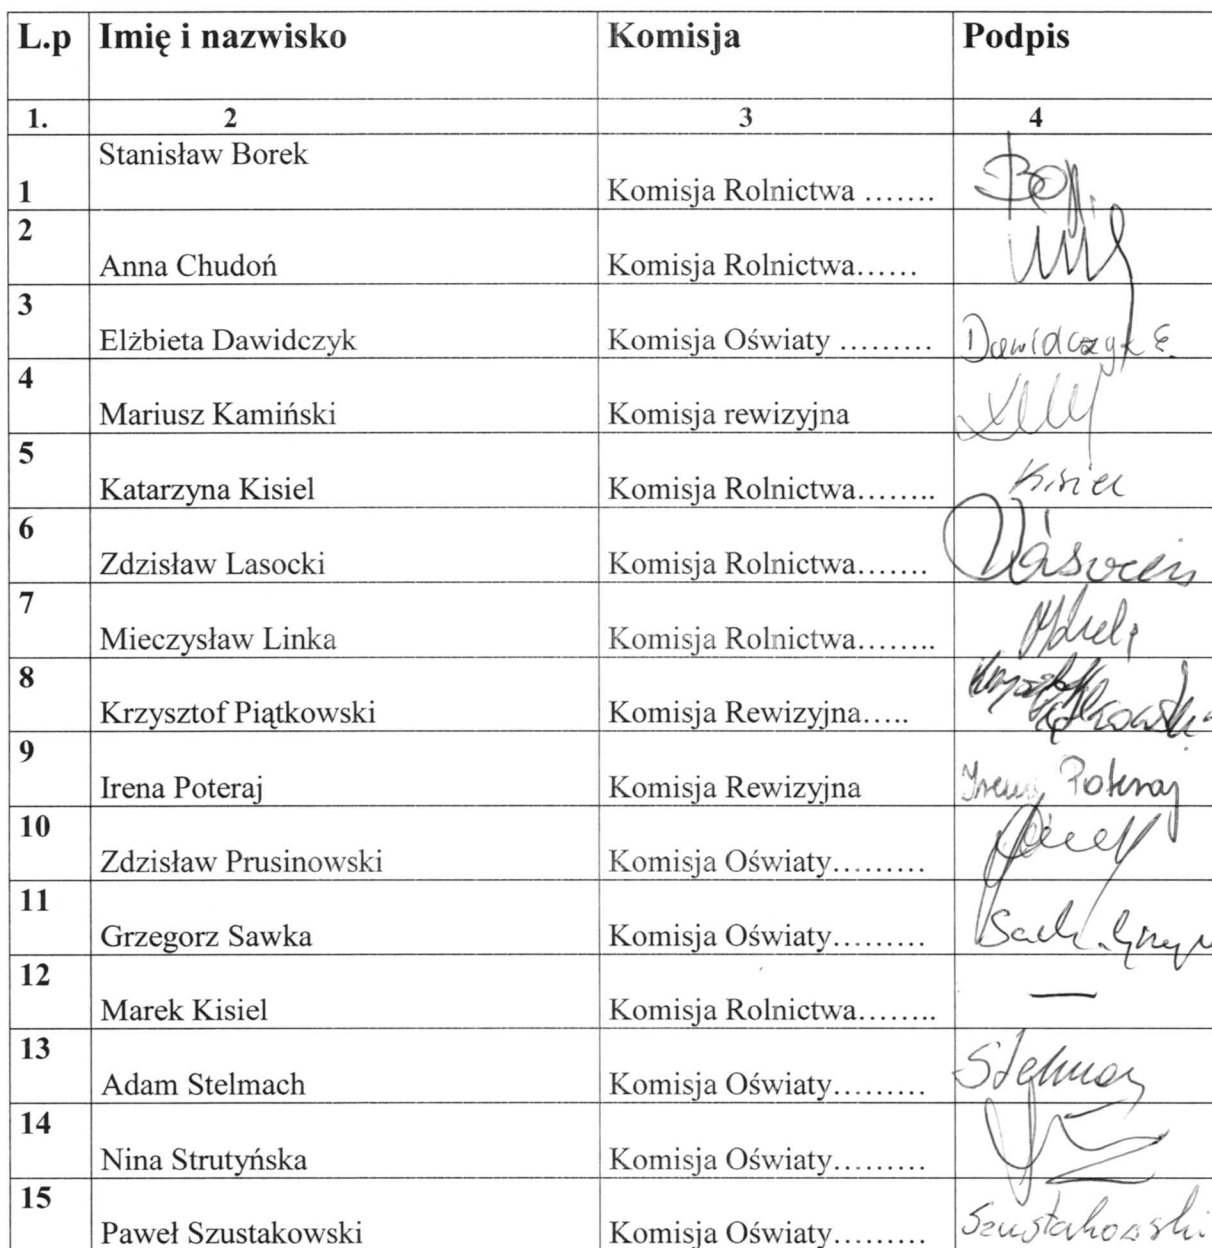 L.p Imię i nazwisko Komisja Podpis
1. 2 3 4
Stanisław Borek
1 Komisja Rolnictwa .......
2
Anna Chudoń Komisja Rolnictwa......
3
Elżbieta Dawidczyk Komisja Oświaty ......... Dawidczyk E.
4
Mariusz Kamiński Komisja rewizyjna
5
Katarzyna Kisiel Komisja Rolnictwa........ Kisiel
6
Zdzisław Lasocki Komisja Rolnictwa.......
7
Mieczysław Linka Komisja Rolnictwa........
8
Krzysztof Piątkowski Komisja Rewizyjna.....
9
Irena Poteraj Komisja Rewizyjna Irena Poteraj
10
Zdzisław Prusinowski Komisja Oświaty.........
11
Grzegorz Sawka Komisja Oświaty.........
12
Marek Kisiel Komisja Rolnictwa........ —
13
Adam Stelmach Komisja Oświaty.........
14
Nina Strutyńska Komisja Oświaty.........
15
Paweł Szustakowski Komisja Oświaty......... Szustakowski